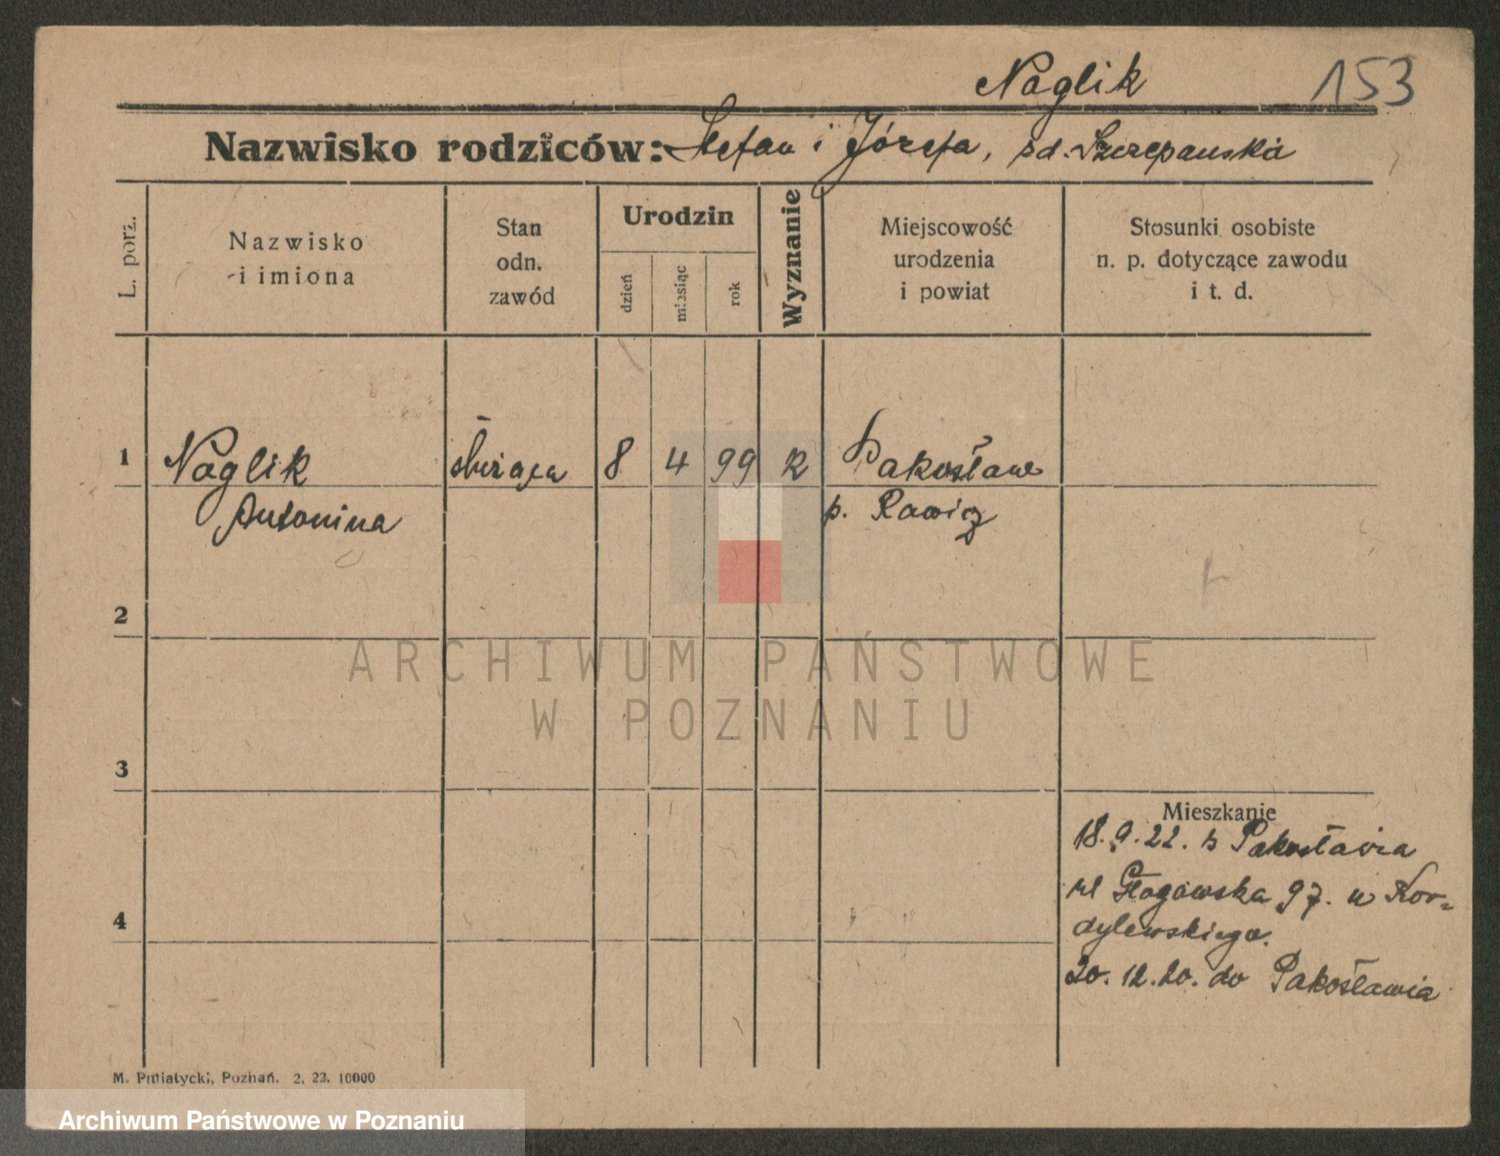 Naglik 153
Nazwisko rodziców: Stefan i Józefa, zd. Szczepańska
L. porz.
Nazwisko
i imiona
Stan
odn.
zawód
Urodzin
dzień
miesiąc
rok
Wyznanie
Miejscowość
urodzenia
i powiat
Stosunki osobiste
n. p. dotyczące zawodu
i t. d.
1 Naglik służąca 8 4 99 k Pakosław
Antonina p. Rawicz
2
3
4
Mieszkanie
18. 9. 22. z Pakosławia
ul Głogowska 97. u Kor-
dylewskiego.
20. 12. 20. do Pakosławia
M. Putiatycki, Poznań. 2. 23. 10000
ARCHIWUM PAŃSTWOWE
W POZNANIU
Archiwum Państwowe w Poznaniu